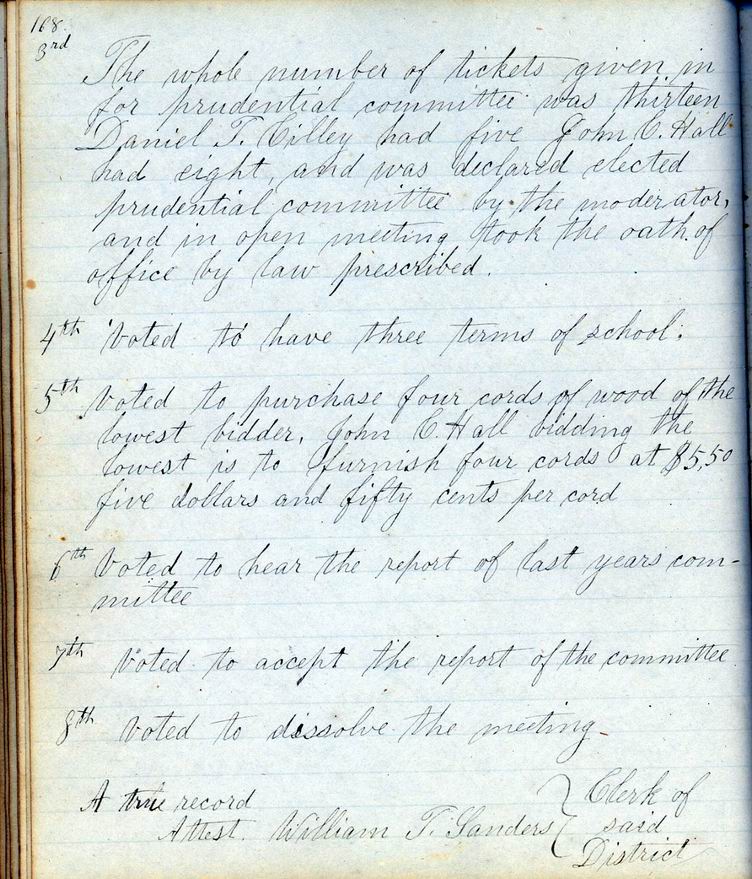 168.
3rd
The whole number of tickets given in
for prudential committee was thirteen
Daniel T. Cilley had five John C. Hall
had eight, and was declared elected
prudential committee by the moderator,
and in open meeting took the oath of
office by law prescribed.
4th Voted to have three terms of school.
5th Voted to purchase four cords of wood of the
lowest bidder, John C Hall bidding the
lowest is to furnish four cords at $5,50
five dollars and fifty cents per cord
6th Voted to hear the report of last years com-
mittee
7th Voted to accept the report of the committee
8th Voted to dissolve the meeting.
A true record
Attest. William T. Sanders } Clerk of
said
District